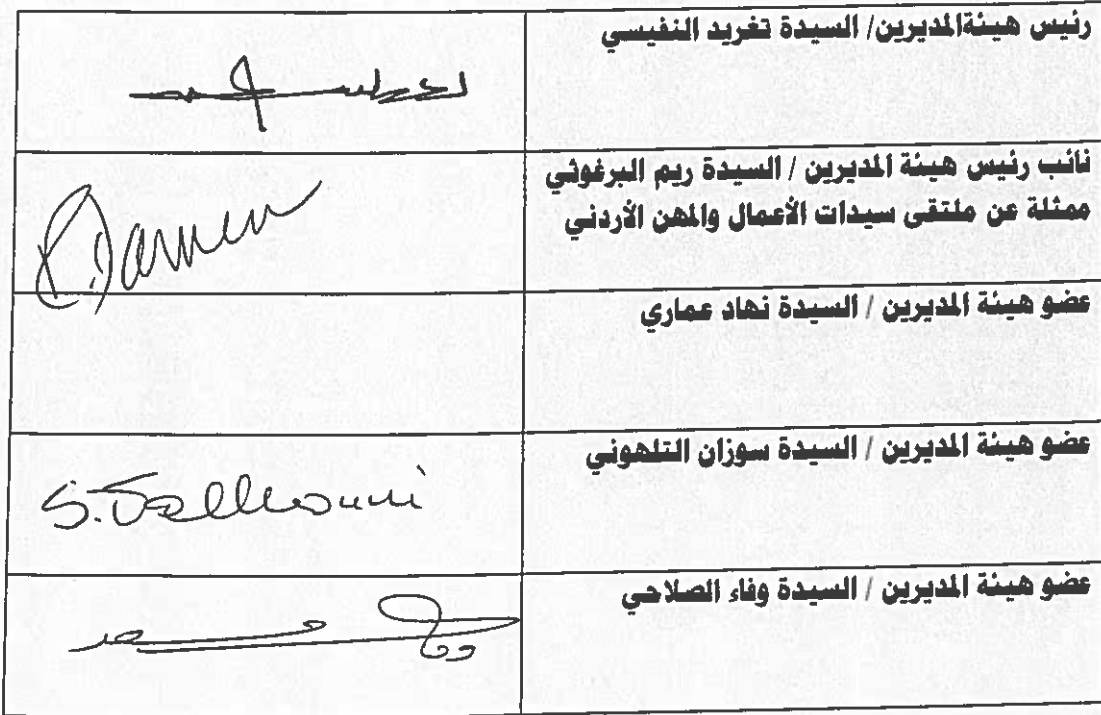 رئيس هيئةالمديرين/ السيدة تغريد النفيسي
نائب رئيس هيئة المديرين / السيدة ريم البرغوثي
ممثلة عن ملتقى سيدات الأعمال والمهن الأردني
عضو هيئة المديرين / السيدة نهاد عماري
عضو هيئة المديرين / السيدة سوزان التلهوني
S. Talhouni
عضو هيئة المديرين / السيدة وفاء الصلاحي